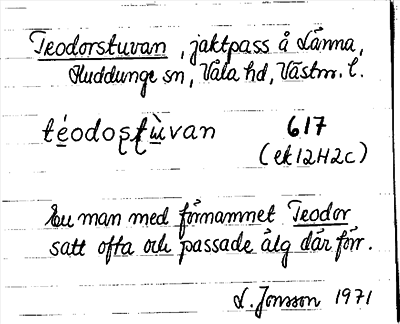 Teodorstuvan, jaktpass å Länna,
Huddunge sn, Våla hd, Västm. l.
téodoʂʈùvan 617
(ek 12H2c)
En man med förnamnet Teodor
satt ofta och passade älg där förr.
L. Jonsson 1971